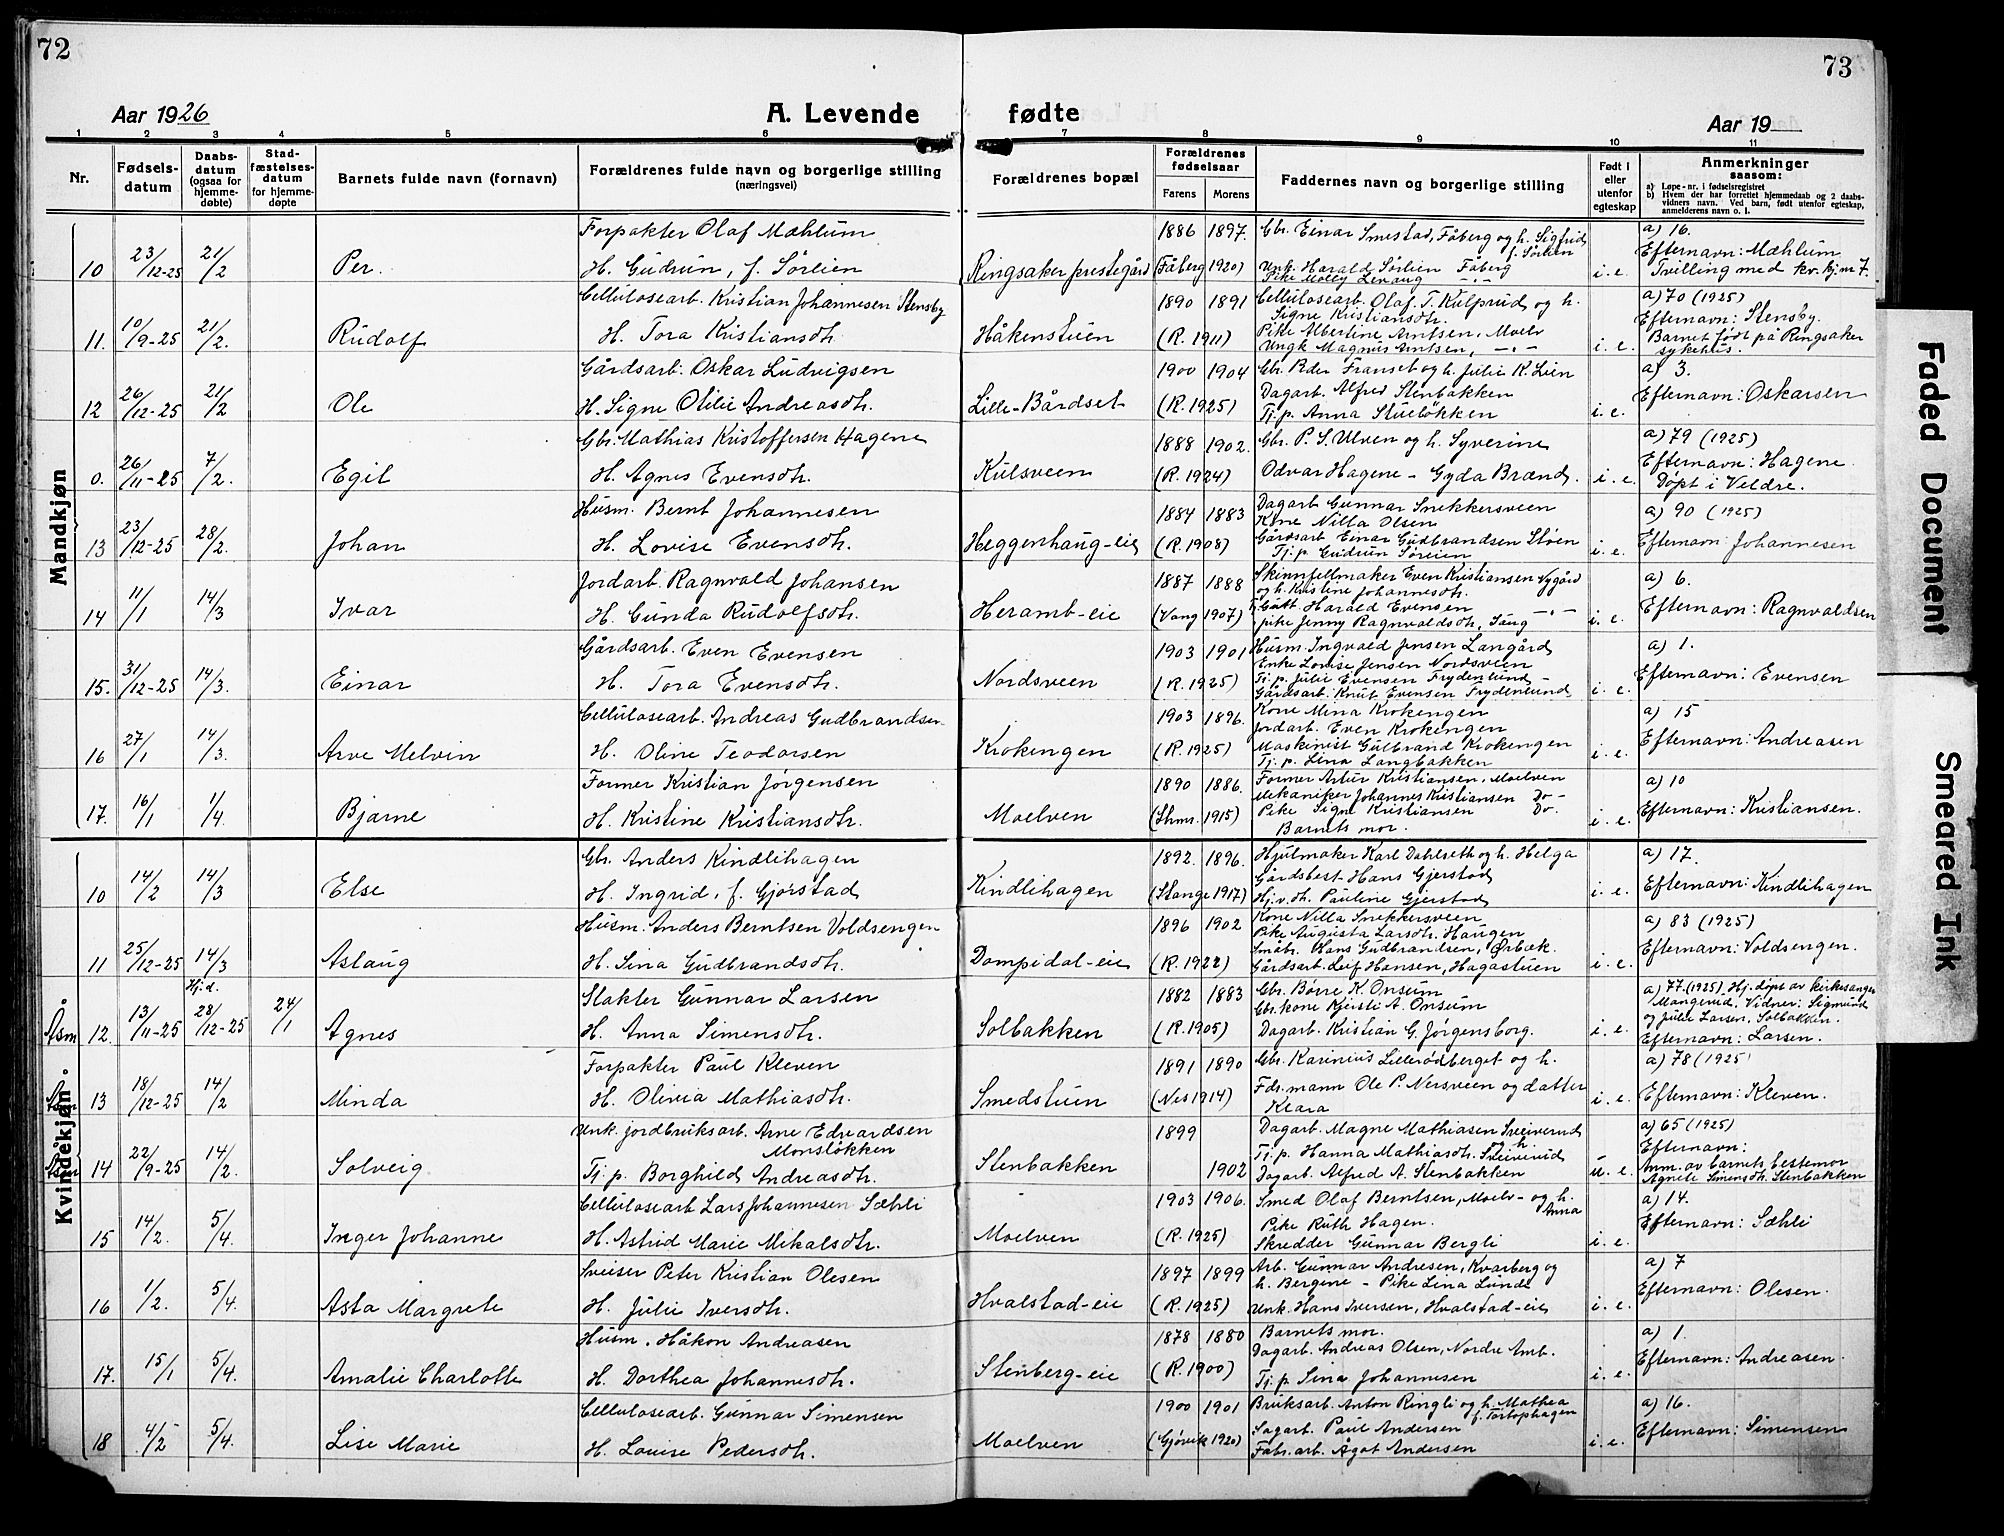 72
Aar 1926
A. Levende
fødte
73
Aar 19
1 2 3 4 5 6 7 8 9 10 11
Nr.
Fødsels-
datum
Daabs-
datum
(ogsaa for
hjemme-
døbte)
Stad-
fæstelses-
datum
for hjemme-
døpte
Barnets fulde navn (fornavn)
Forældrenes fulde navn og borgerlige stilling
(næringsvei)
Forældrenes bopæl
Forældrenes
fødselsaar
Farens Morens
Faddernes navn og borgerlige stilling
Født i
eller
utenfor
egteskap
Anmerkninger
saasom:
a) Løpe-nr. i fødselsregistret
b) Hvem der har forrettet hjemmedaab og 2 daabs-
vidners navn. Ved barn, født utenfor egteskap,
anmelderens navn o. l.
Mandkjøn
10 23/12-25 21/2 Per.
Forpakter Olaf Mæhlum
H. Gudrun, f. Sørlien
Ringsaker prestegård
1886 1897.
(Fåberg 1920)
Gbr. Einar Smestad, Fåberg og h. Sigfrid
f. Sørlien
Unk. Harald Sørlien Fåberg
Pike Molly Lenaug -"-
i. e.
a) 16.
Efternavn: Mæhlum
Tvilling med kv. kj. nr 7.
11. 10/9-25 21/2. Rudolf
Cellulosearb. Kristian Johannesen Stensby
H. Tora Kristiansdh.
Håkenstuen
1890 1891
(R. 1911)
Cellulosearb. Olaf T. Kulprud og h.
Signe Kristiansdh.
Pike Albertine Arntsen, Moelv
Ungk Magnus Arntsen, -"-
i. e.
a) 70 (1925)
Efternavn: Stensby.
Barnet født på Ringsaker
sykehus.
12 26/12-25 21/2 Ole
Gårdsarb. Oskar Ludvigsen
H. Signe Otilie Andreasdh.
Lille-Bårdset
1900 1904
(R. 1925)
Gbr. Peder Franset og h. Julie K. Lien
Dagarb. Alfred Stenbakken
Tj. p. Anna Stuebökken
i. e.
a) 3.
Efternavn: Oskarsen
0. 26/11-25 7/2. Egil
Gbr. Mathias Kristoffersen Hagene
H. Agnes Evensdh.
Kulsveen
1888 1902.
(R. 1924)
Gbr. P. S. Ulven og h. Syverine
Odvar Hagene - Gyda Brænd.
i. e.
a) 79 (1925)
Efternavn: Hagene.
Døpt i Veldre.
13 23/12-25 28/2. Johan
Husm. Bernt Johannesen
H. Lovise Evensdh.
Heggenhaug-eie
1884 1883
(R. 1908)
Dagarb Gunnar Snekkersveen
Kone Nilla Olsen
Gårdsarb Einar Gudbrandsen Støen
Tj. p. Gudrun Søreien
i. e.
a) 90 (1925)
Efternavn Johannesen
14 11/1 14/3 Ivar
Jordarb. Ragnvald Johansen
H. Gunda Rudolfsdh.
Heramb-eie
1887 1888
(Vang 1907)
Skinnfellmaker Even Kristiansen Nygård
og h. Kristine Johannesdh.
Gutt. Harald Evensen -"-
pike Jenny Ragnvaldsdh,
i. e.
a) 6.
Efternavn: Ragnvaldsen
15. 31/12-25 14/3. Einar
Gårdsarb. Even Evensen
H. Tora Evensdh.
Nordsveen
1903 1901
(R. 1925)
Husm. Ingvald Jensen Langård
Enke Lovise Jensen Nordsveen
Tj. p. Julie Evensen Frydenlund -
Gårdsarb. Knut Evensen Frydenlund
i. e.
a) 1.
Efternavn: Evensen
16 27/1 14/3. Arve Melvin
Cellulosearb. Andreas Gudbrandsen
H. Oline Teodorsen
Krokengen
1903 1896.
(R. 1925)
Kone Mina Krokengen
Jordarb. Even Krokengen
Maskinist Gulbrand Krokengen
Tj. p. Lina Langbakken
i. e.
a) 15
Efternavn: Andreasen
17. 16/1 1/4. Bjarne
Former Kristian Jørgensen
H. Kristine Kristiansdh.
Moelven
1890 1886.
1915)
Former Artur Kristiansen, Moelven
Mekaniker Johannes Kristiansen Do-
Pike Signe Kristiansen Do.
Barnets mor.
i. e.
a) 10
Efternavn: Kristiansen.
Kvindekjøn
10 14/2 14/3 Else
Gbr. Anders Kindlihagen
H. Ingrid, f. Gjørstad
Kindlihagen
1892. 1896.
(Stange 1917)
Hjulmaker Karl Dahlseth og h. Helga
Gårdsbest. Hans Gjerstad
Hj. v. dh. Pauline Gjerstad
i. e.
a) 17.
Efternavn: Kindlihagen
11 25/12-25 14/3 Aslaug
Husm. Anders Berntsen Voldsengen
H. Sina Gudbrandsdh.
Dompidal-eie
1896 1902
(R. 1922)
Kone Nilla Snekkersveen
Pike Augusta Larsdh. Haugen
Småbr. Hans Gudbrandsen, Ørbæk
Gårdsarb. Leif Hansen, Hagastuen
i. e.
a) 83 (1925)
Efternavn: Voldsengen.
Åsm 12. 13/11-25 Hj.d. 28/12-25 24/1 Agnes
Slakter Gunnar Larsen
H. Anna Simensdh.
Solbakken
1882 1883
(R. 1905)
Gbr. Børre K. Onsum
Gbr. kone Kjersti A. Onsum
Dagarb. Kristian G. Jørgensborg.
i. e.
a) 77 (1925) Hj. døpt av kirkesanger
Mangerud, Vidner: Sigmund
og Julie Larsen, Solbakken.
Efternavn: Larsen.
Åsm 13 18/12-25 14/2 Minda
Forpakter Paul Kleven
H. Olivia Mathiasdh.
Smedstuen
1891 1890
(Nes 1914)
Gbr. Karinius Lillerødberget og h.
Fdr. mann Ole P. Nersveen og datter
Klara
i. e.
a) 78 (1925)
Efternavn: Kleven.
Åsm 14 22/9-25 14/2. Solveig
Unk. jordbruksarb. Arne Edvardsen
Monsløkken
Tj. p. Borghild Andreasdh.
Stenbakken
1899
1902
Dagarb. Magne Mathiasen Sveiverud
og h.
Tj. p. Hanna Mathiasdh. Sveiverud
Dagarb. Alfred A. Stenbakken
u. e.
a) 65 (1925)
Efternavn:
Anm. av barnets bestemor
Agnete Simensdh. Stenbakken
15 14/2. 5/4. Inger Johanne
Cellulosearb Lars Johannesen Sæhli
H. Astrid Marie Mikalsdh.
Moelven
1903 1906.
(R. 1925)
Smed Olaf Berntsen, Moelv - og h.
Anna
Pike Ruth Hagen.
Skredder Gunnar Bergli
i. e.
a) 14.
Efternavn: Sæhli
16 1/2. 5/4. Asta Margrete
Sveiser Peter Kristian Olesen
H. Julie Iversdh.
Hvalstad-eie
1897 1899
(R. 1925)
Arb. Gunnar Andresen, Kvarberg og
h. Bergine - Pike Lina Lunde
Unk. Hans Iversen, Hvalstad-eie
i. e.
a) 7
Efternavn: Olesen.
17. 15/1 5/4. Amalie Charlotte
Husm. Håkon Andreasen
H. Dorthea Johannesdh.
Stenberg-eie
1878 1880
(R. 1900)
Barnets mor.
Dagarb. Andreas Olsen, Nordre Amb.
Tj. p. Sina Johannesen
i. e.
a) 1.
Efternavn: Andreasen.
18 4/2 5/4. Lise Marie
Cellulosearb. Gunnar Simensen
H. Louise Pedersdh.
Moelven
1900 1901
(Gjøvik 1920)
Bruksarb. Anton Ringli og h. Mathea
f. Tortophagen
Sagarb. Paul Andersen
Fabr. arb. Ågot Andersen
i. e.
a) 16.
Efternavn: Simensen
Faded Document
Smeared Ink